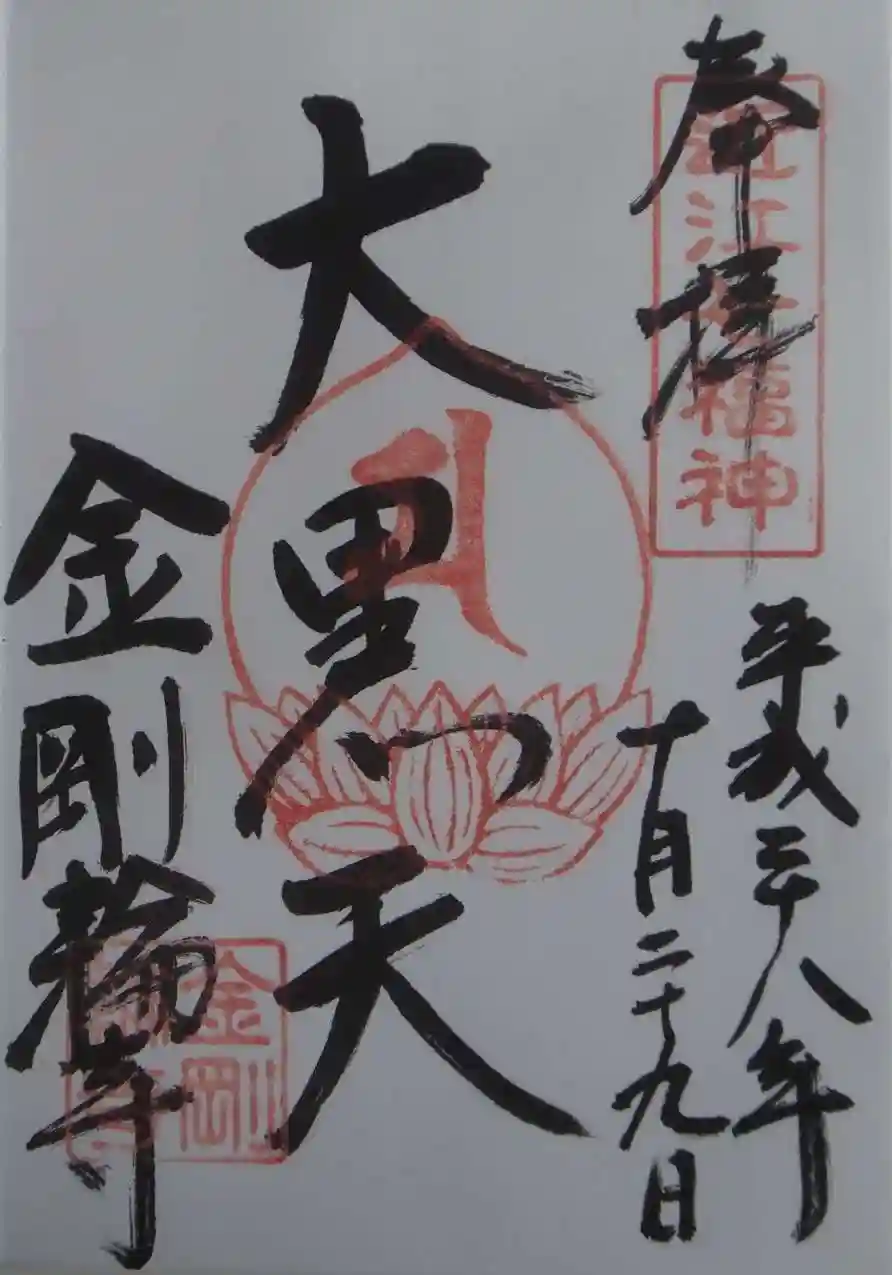 奉拝
近江七福神
平成二十八年
十月二十九日
大黒天
金剛輪寺
金剛輪寺